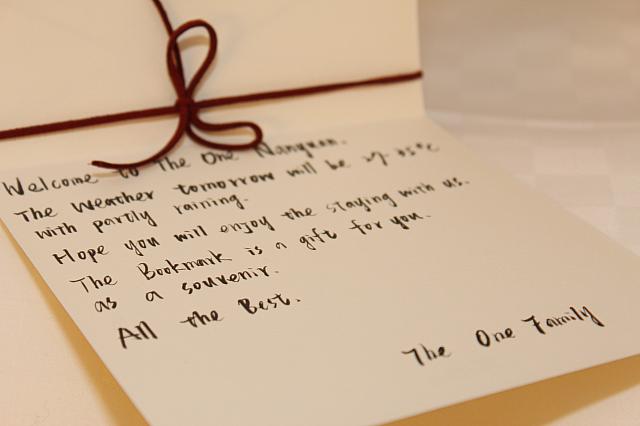 Welcome to The One Nanyuan.
The Weather tomorrow will be 27-35°C
with partly raining.
Hope you will enjoy the staying with us.
The Bookmark is a gift for you.
as a souvenir.
All the Best.
The One Family